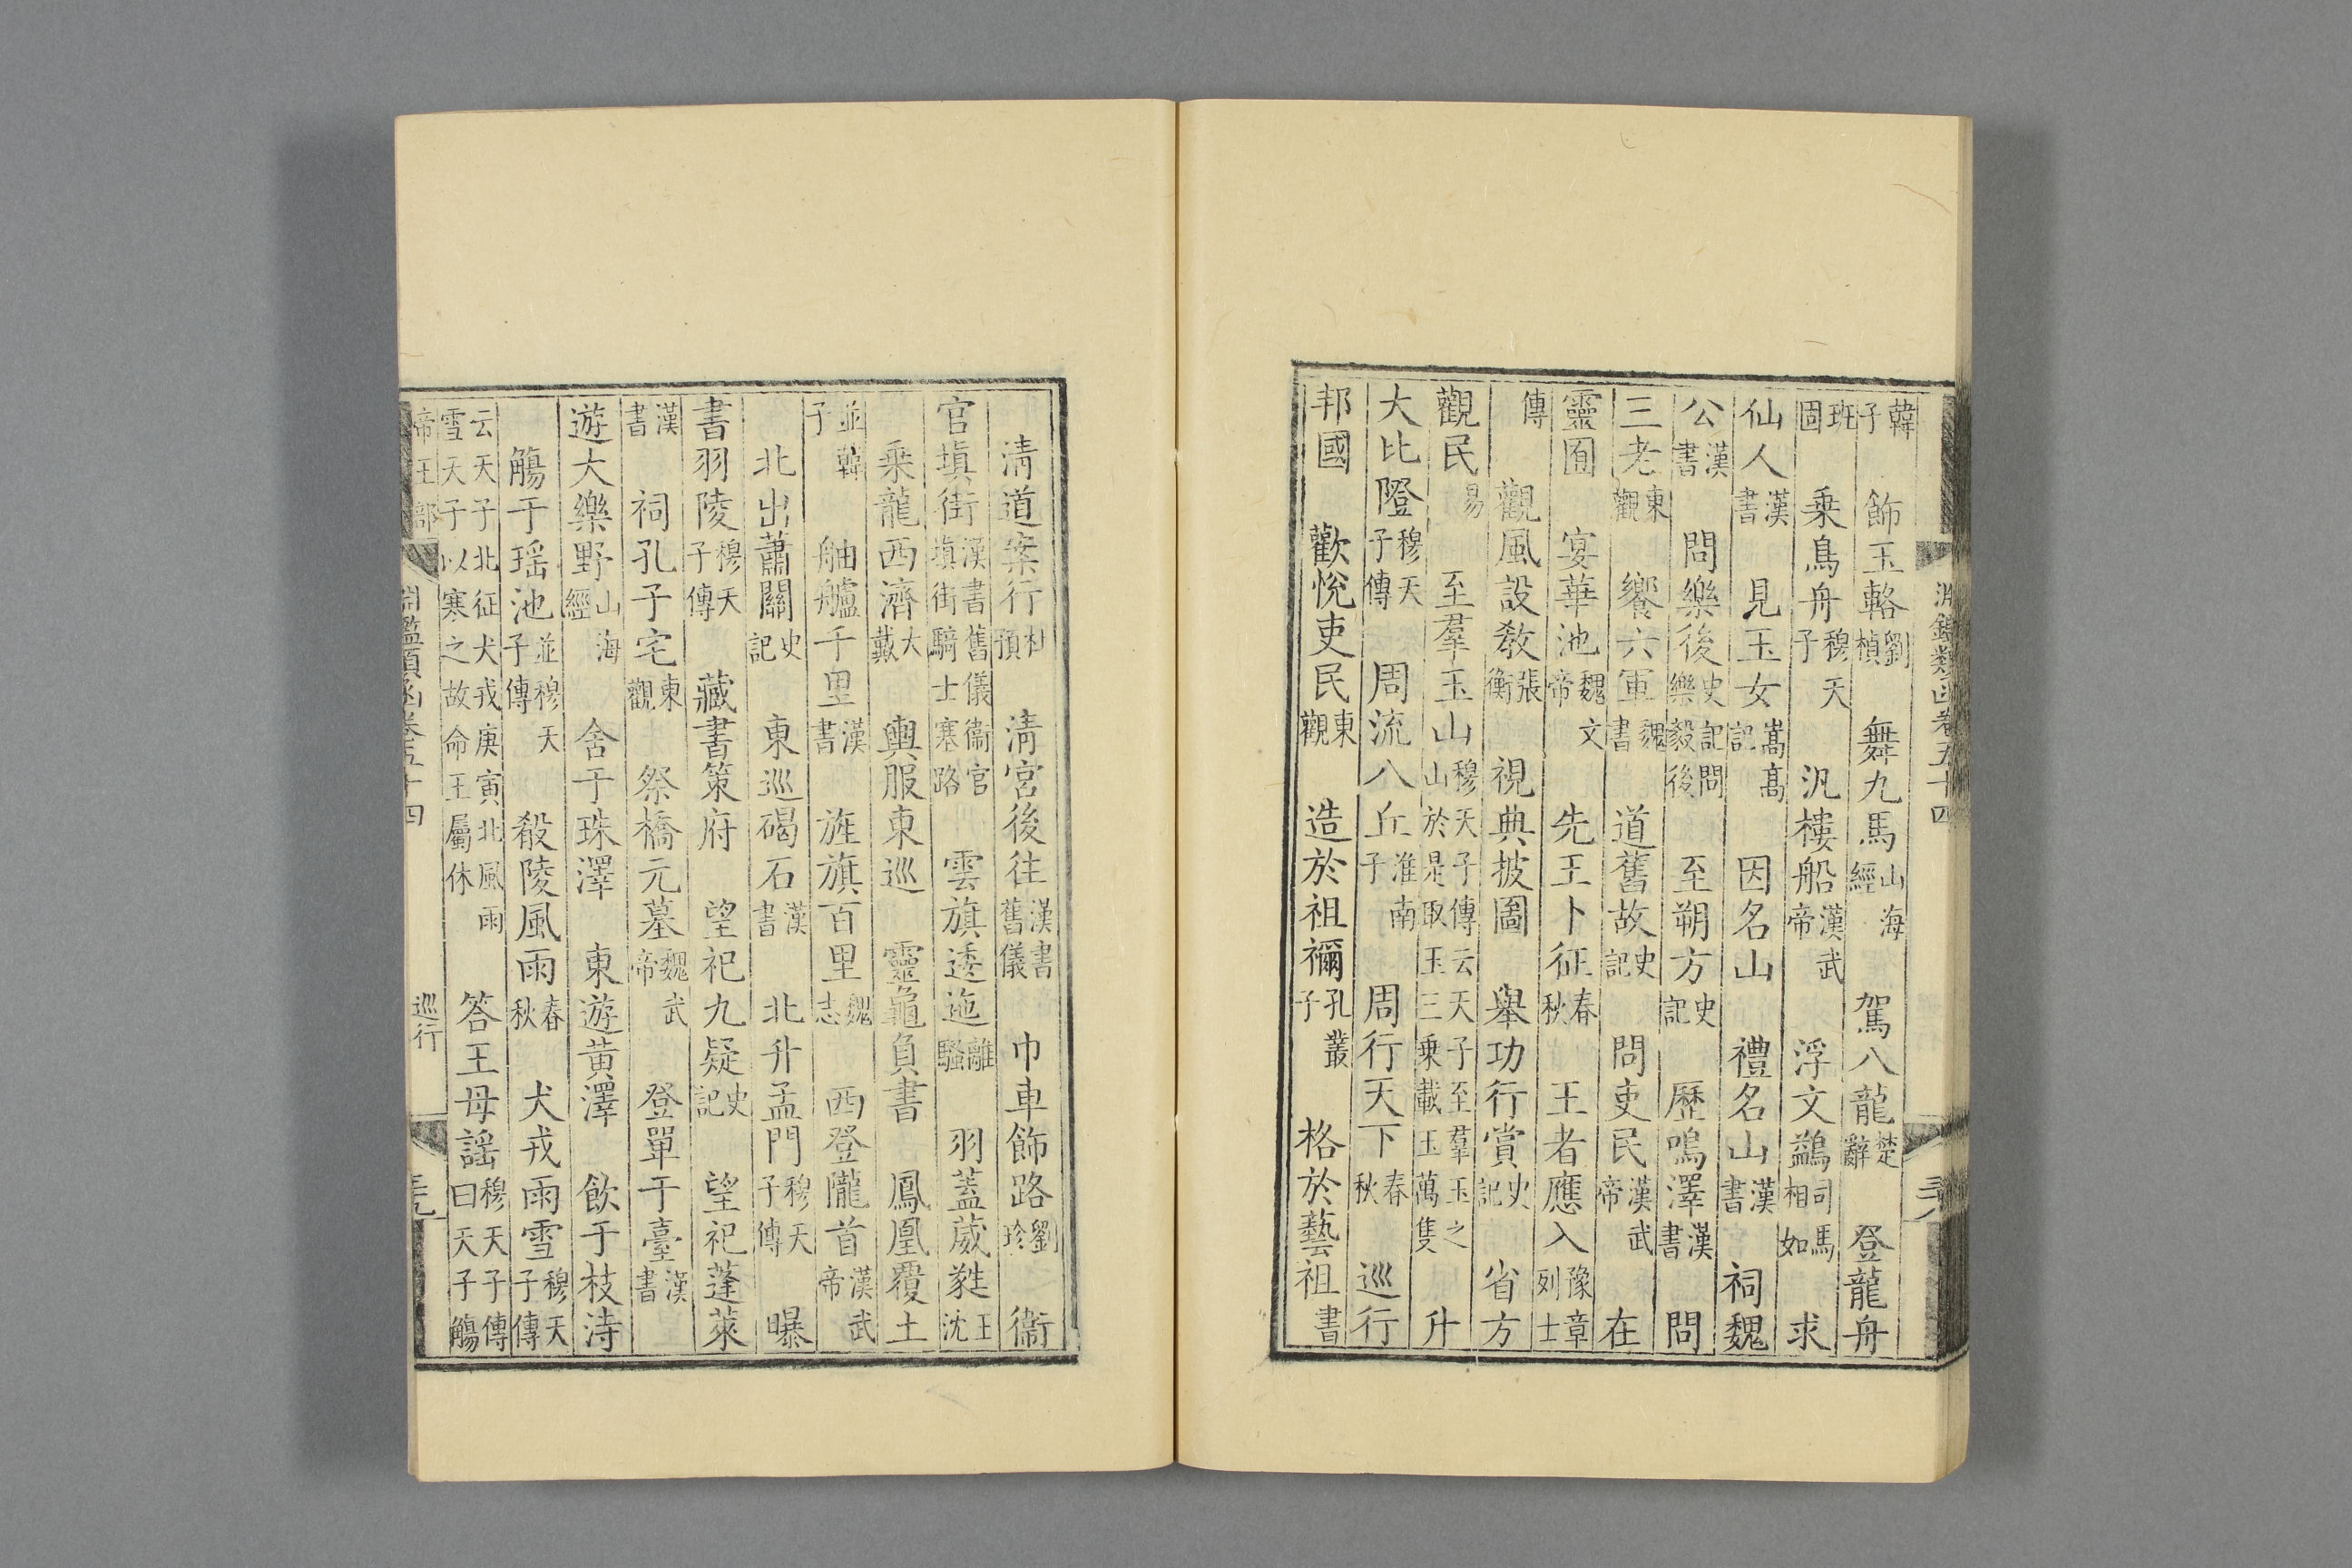 淵鑑類函卷五十四
韓子 飾玉輅劉楨 舞九馬山海經 駕八龍楚辭 登龍舟
班固 乗鳥舟穆天子 汎樓船漢武帝 浮文鷁司馬相如 求
仙人漢書 見玉女嵩高記 因名山 禮名山漢書 祠魏
公漢書 問樂後史記問樂毅後 至朔方史記 歷鳴澤漢書 問
三老東觀 饗六軍魏書 道舊故史記 問吏民漢武帝 在
靈囿 宴華池魏文帝 先王卜征春秋 王者應入豫章列士
傳 觀風設敎張衡 視典披圖 舉功行賞史記 省方
觀民易 至羣玉山穆天子傳云天子至羣玉之山於是取玉三乗載玉萬隻 升
大比隥穆天子傳 周流八丘淮南子 周行天下春秋 巡行
邦國 歡悅吏民東觀 造於祖禰孔叢子 格於藝祖書
清道案行杜預 清宮後往漢書舊儀 巾車飾路劉珍 衞
官塡街漢書舊儀衞官塡街騎士塞路 雲旗逶迤離騷 羽蓋葳蕤王沈
乗龍西濟大戴 輿服東巡 靈龜負書 鳳凰覆土
並韓子 舳艫千里漢書 旌旗百里魏志 西登隴首漢武帝
北出蕭關史記 東巡碣石漢書 北升孟門穆天子傳 曝
書羽陵穆天子傳 藏書策府 望祀九疑史記 望祀蓬萊
漢書 祠孔子宅東觀 祭橋元墓魏武帝 登單于臺漢書
遊大樂野山海經 舍于珠澤 東遊黃澤 飲于枝洔
觴于瑶池並穆天子傳 殽陵風雨春秋 犬戎雨雪穆天子傳
云天子北征犬戎庚寅北風雨雪天子以寒之故命王屬休 答王母謡穆天子傳曰天子觴
帝王部 淵鑑類函卷五十四 巡行